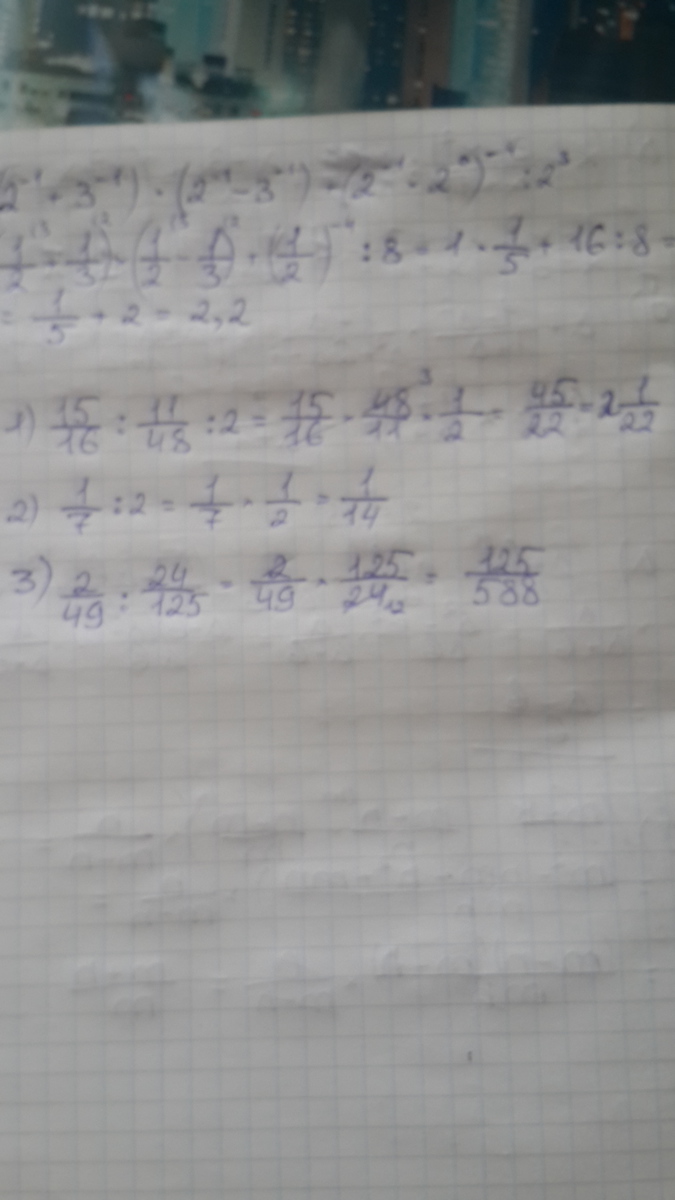 (2⁻¹ + 3⁻¹) · (2⁻¹ - 3⁻¹) + (2⁻¹ · 2⁰)⁻⁴ : 2³
(1/2 + 1/3) · (1/2 - 1/3) + (1/2)⁻⁴ : 8 = 1 · 1/5 + 16 : 8 =
= 1/5 + 2 = 2,2
1) 15/16 : 11/48 : 2 = 15/16 · 48³/11 · 1/2 = 45/22 = 2 1/22
2) 1/7 : 2 = 1/7 · 1/2 = 1/14
3) 2/49 : 24/125 = 2/49 · 125/24₁₂ = 125/588